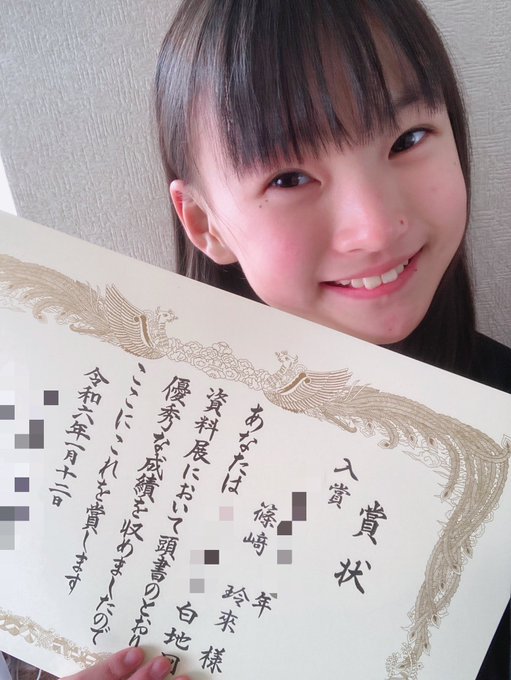 賞状
入賞
年
篠﨑 玲來 様
あなたは 白地図
資料展において頭書のとおり
優秀な成績を収めましたので
ここにこれを賞します
令和六年一月十二日